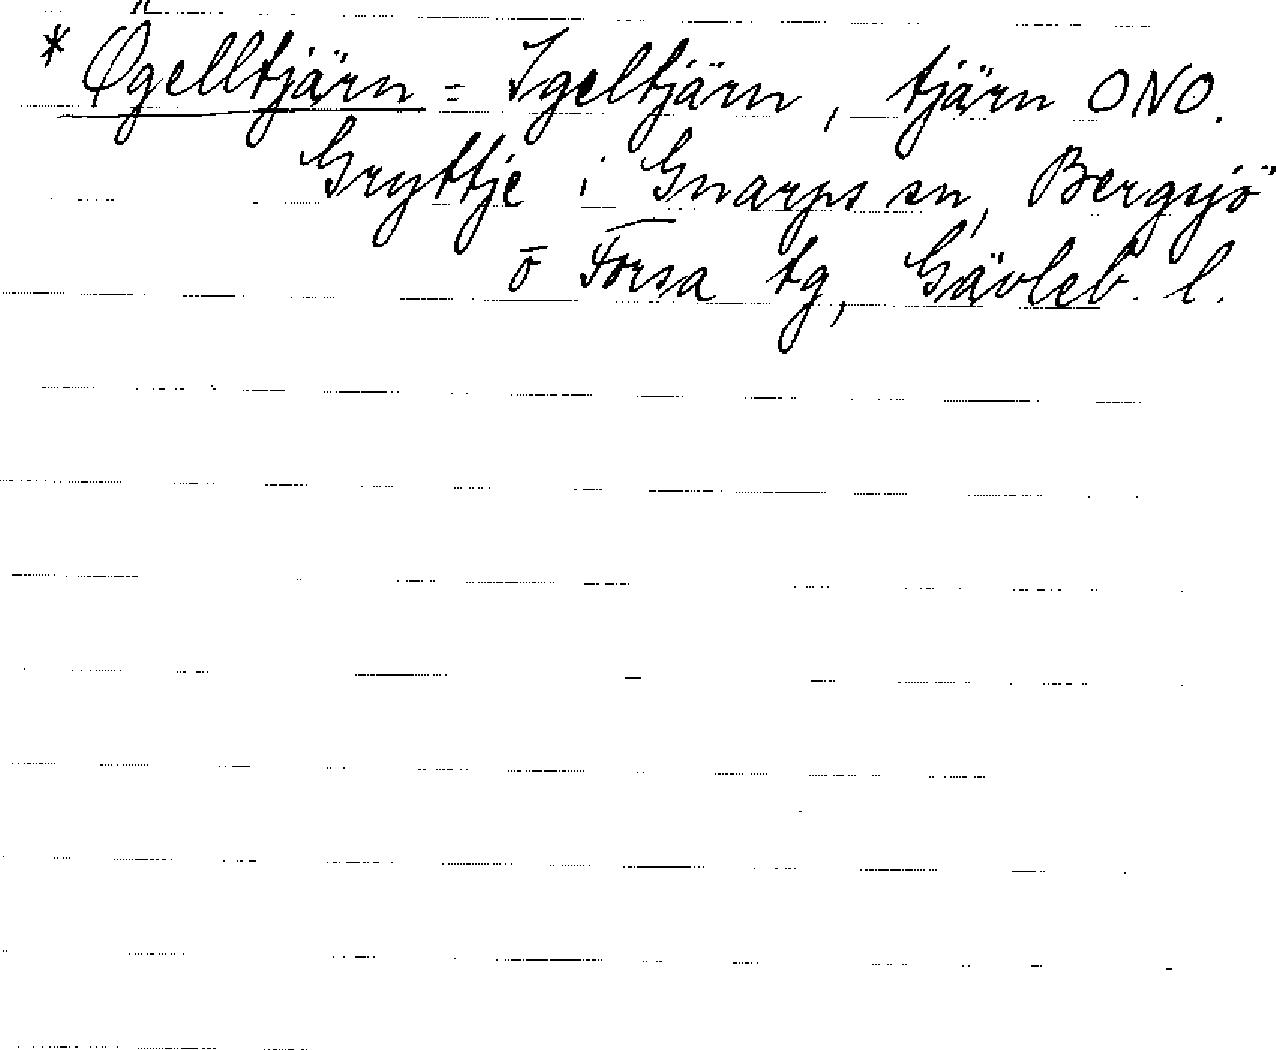 * Øgelltjärn = Igeltjärn, tjärn ONO.
Gryttje i Gnarps sn, Bergsjö
o Forsa tg, Gävleb. l.